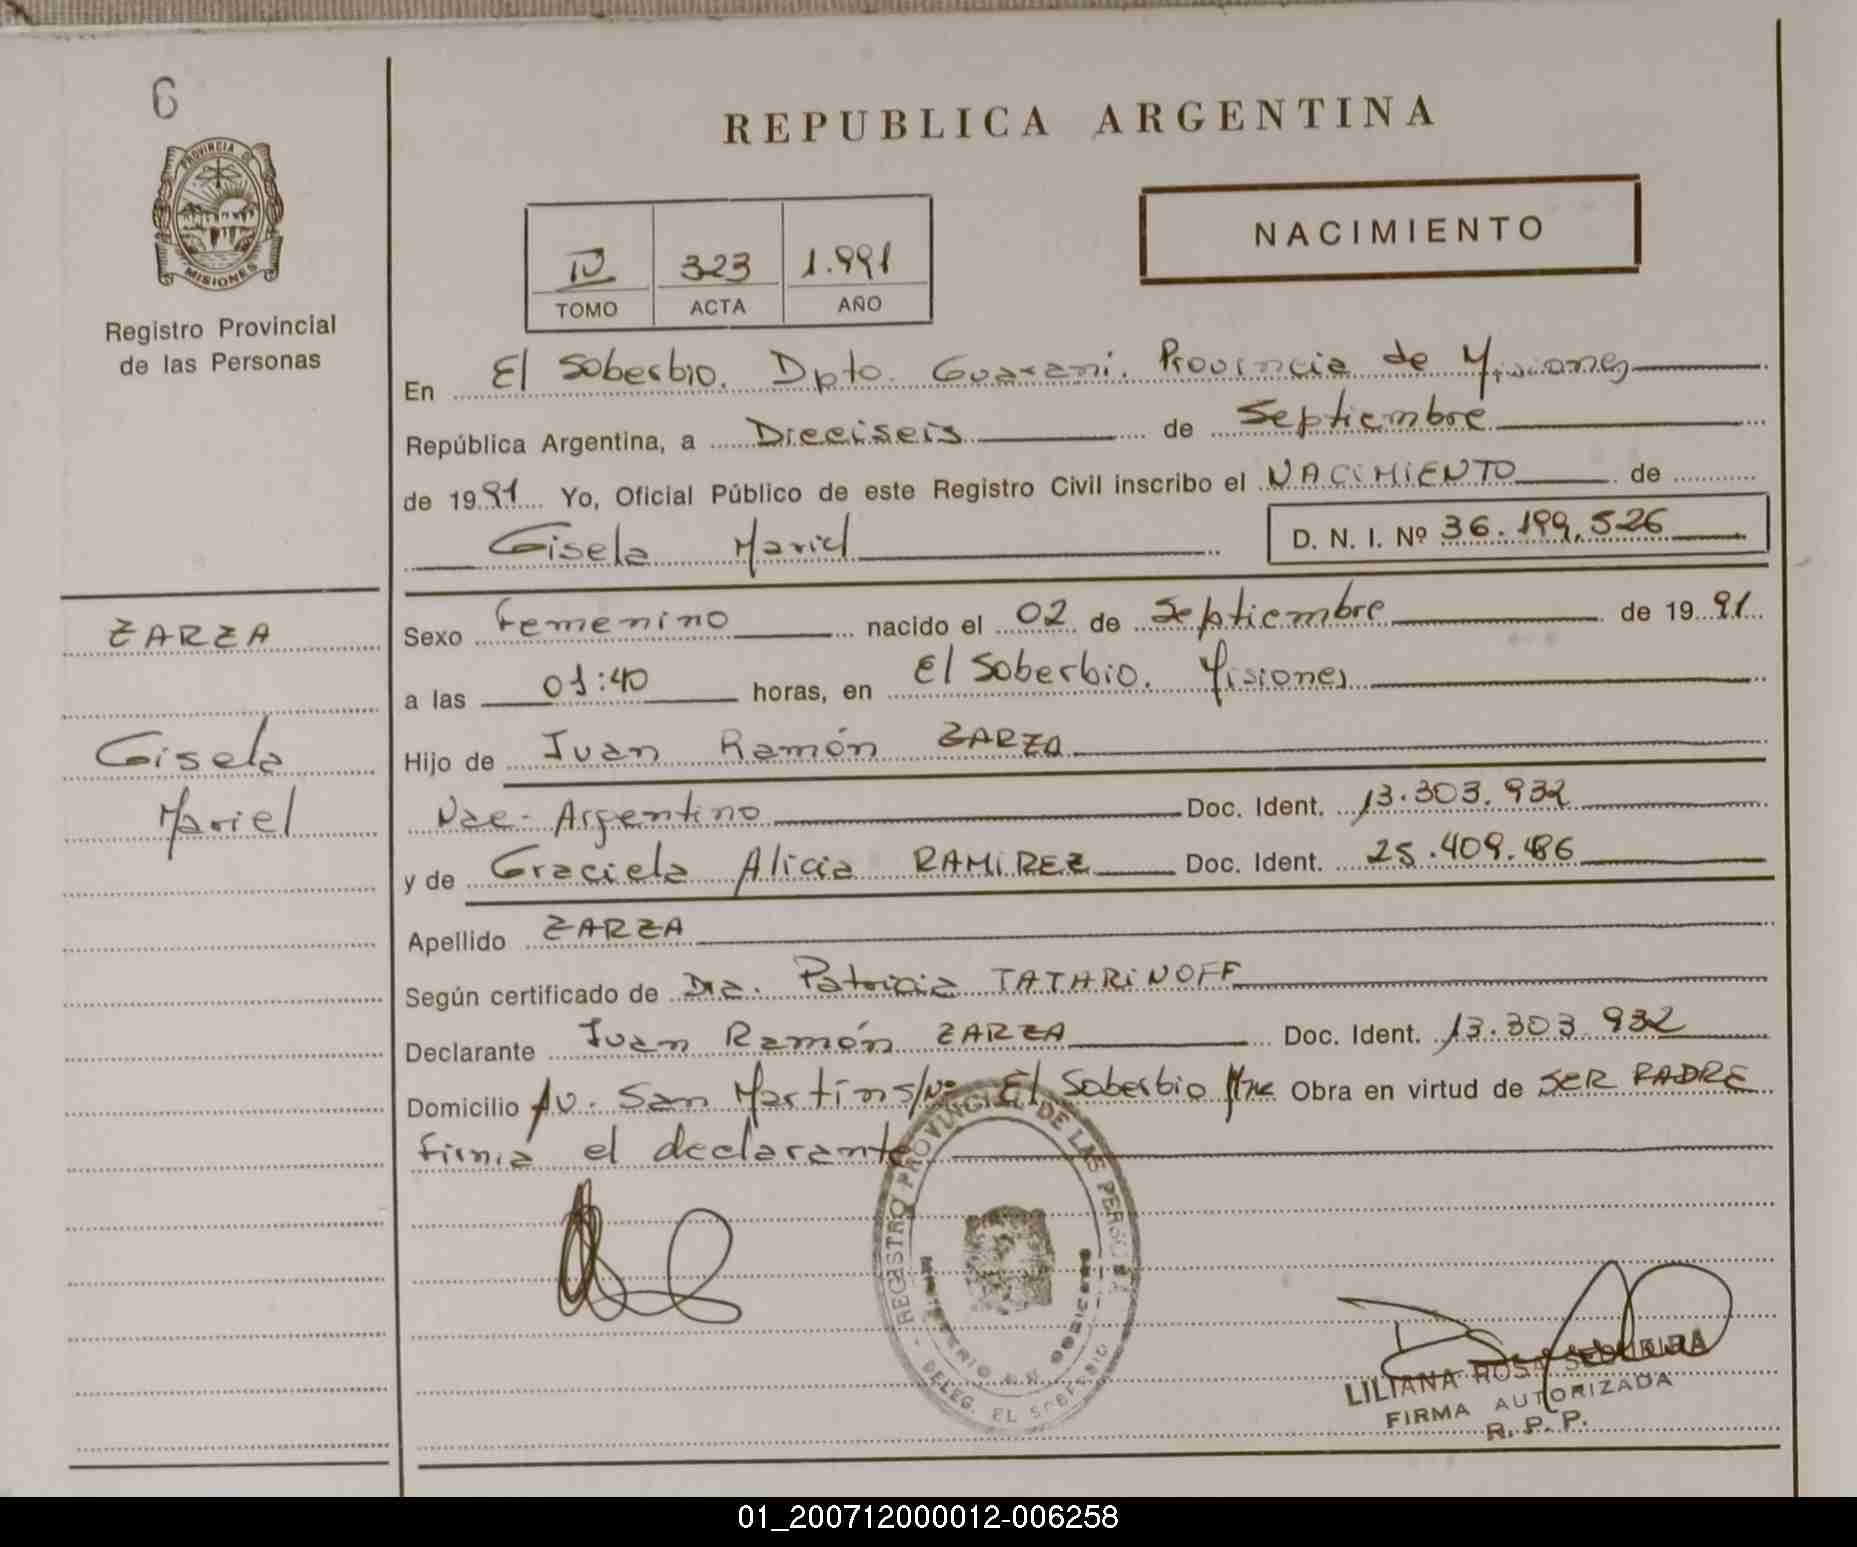 6
PROVINCIA DE
MISIONES
Registro Provincial
de las Personas
REPUBLICA ARGENTINA
NACIMIENTO
IV 323 1.991
TOMO ACTA AÑO
En El Soberbio. Dpto. Guarani. Provincia de Misiones
República Argentina, a Dieciseis de Septiembre
de 1991 Yo, Oficial Público de este Registro Civil inscribo el NACIMIENTO de
Gisela Mariel D. N. I. Nº 36.199.526
ZARZA
Gisela
Mariel
Sexo Femenino nacido el 02 de Septiembre de 1991
a las 01:40 horas, en El Soberbio. Misiones
Hijo de Juan Ramón ZARZA
Nac. Argentino Doc. Ident. 13.303.932
y de Graciela Alicia RAMIREZ Doc. Ident. 25.409.486
Apellido ZARZA
Según certificado de Dra. Patricia TATARINOFF
Declarante Juan Ramón ZARZA Doc. Ident. 13.303.932
Domicilio Av. San Martin s/Nº El Soberbio Mnes Obra en virtud de SER PADRE
firma el declarante
REGISTRO PROVINCIAL DE LAS PERSONAS
MINISTERIO DE GOBIERNO
DELEG. EL SOBERBIO
LILIANA ROSA
FIRMA AUTORIZADA
R. P. P.
01_200712000012-006258